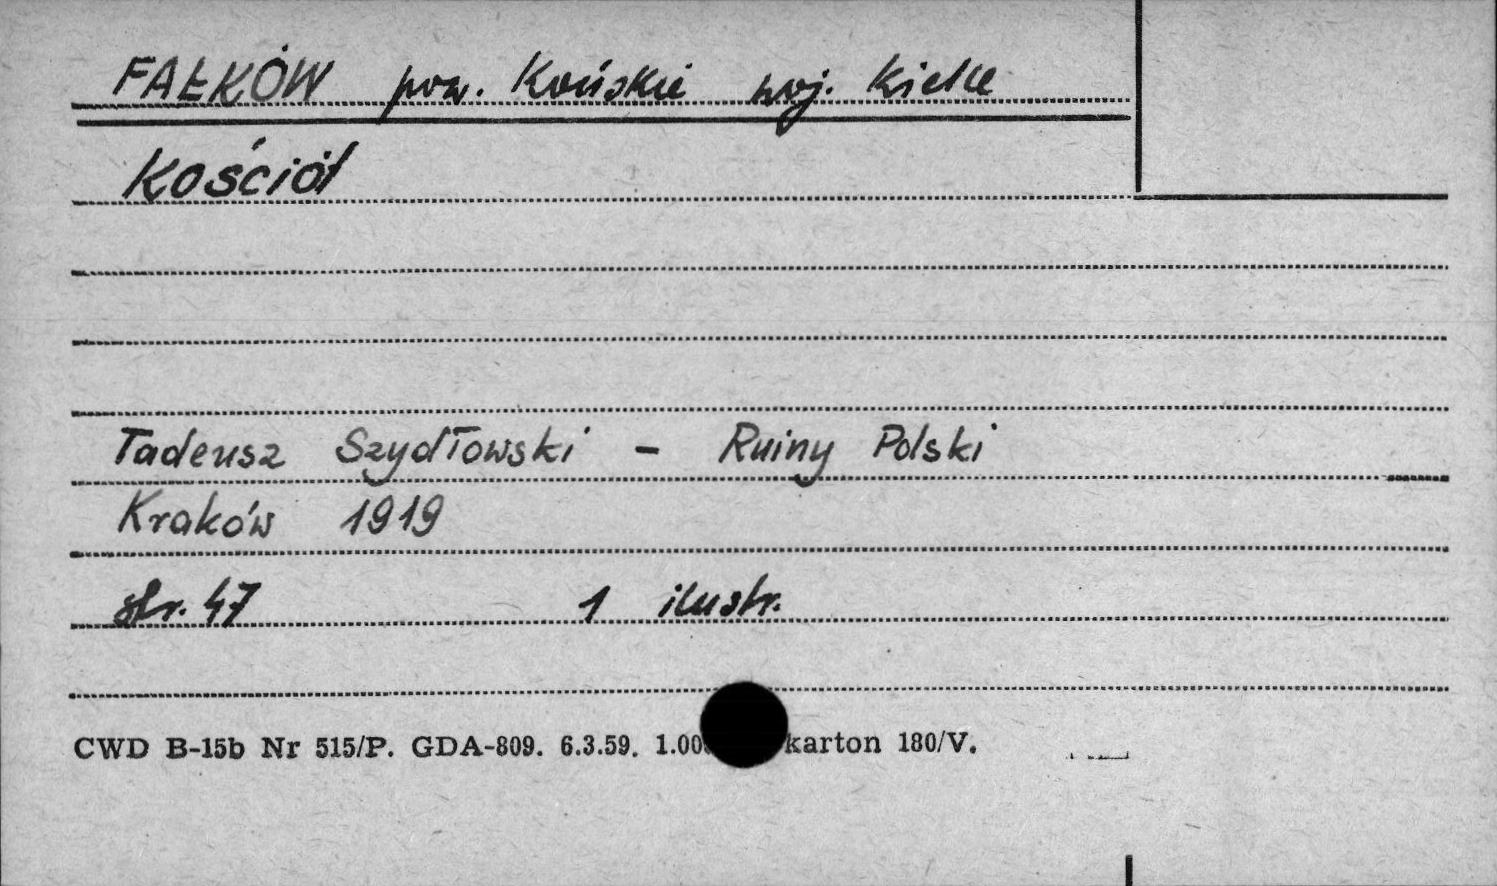 FAŁKÓW pow. Końskie woj. Kielce
Kościół
Tadeusz Szydłowski - Ruiny Polski
Kraków 1919
str. 47 1 ilustr.
CWD B-15b Nr 515/P. GDA-809. 6.3.59. karton 180/V.